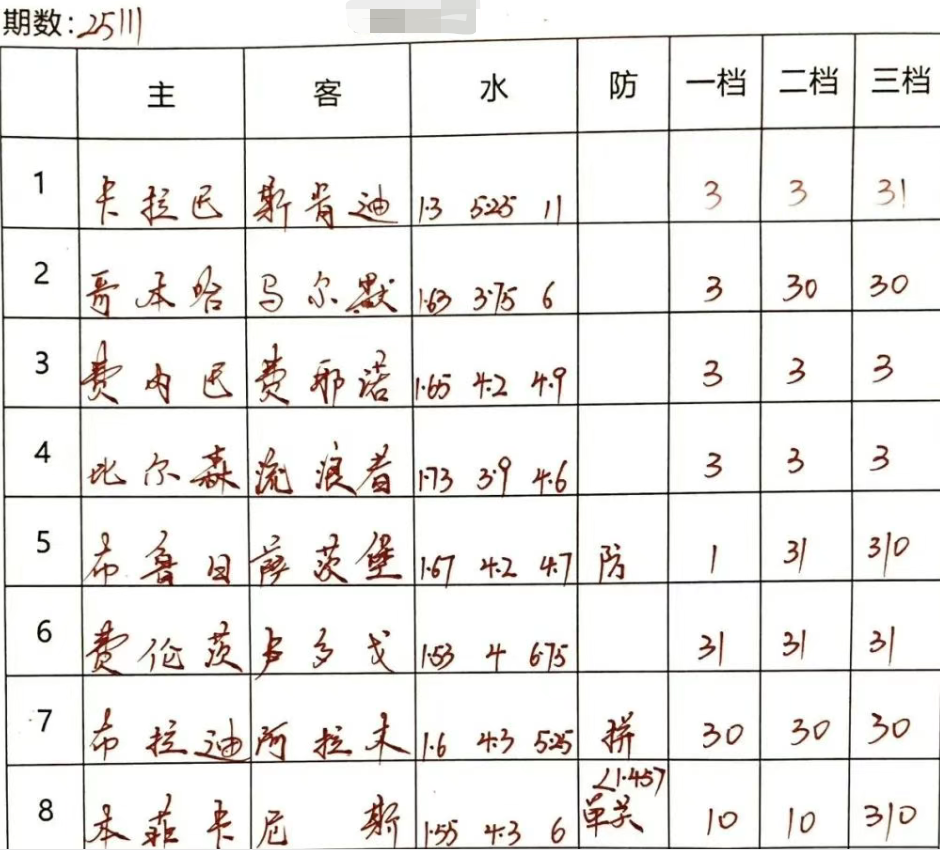 期数:25111
主 客 水 防 一档 二档 三档
1 卡拉巴 斯肯迪 1.3 5.25 11 3 3 31
2 哥本哈 马尔默 1.63 3.75 6 3 30 30
3 费内巴 费耶诺 1.65 4.2 4.9 3 3 3
4 比尔森 流浪者 1.73 3.9 4.6 3 3 3
5 布鲁日 萨茨堡 1.67 4.2 4.7 防 1 31 310
6 费伦茨 卢多戈 1.53 4 6.75 31 31 31
7 布拉迪 阿拉木 1.6 4.3 5.25 拼 30 30 30
8 本菲卡 尼斯 1.55 4.3 6 单关 10 10 310